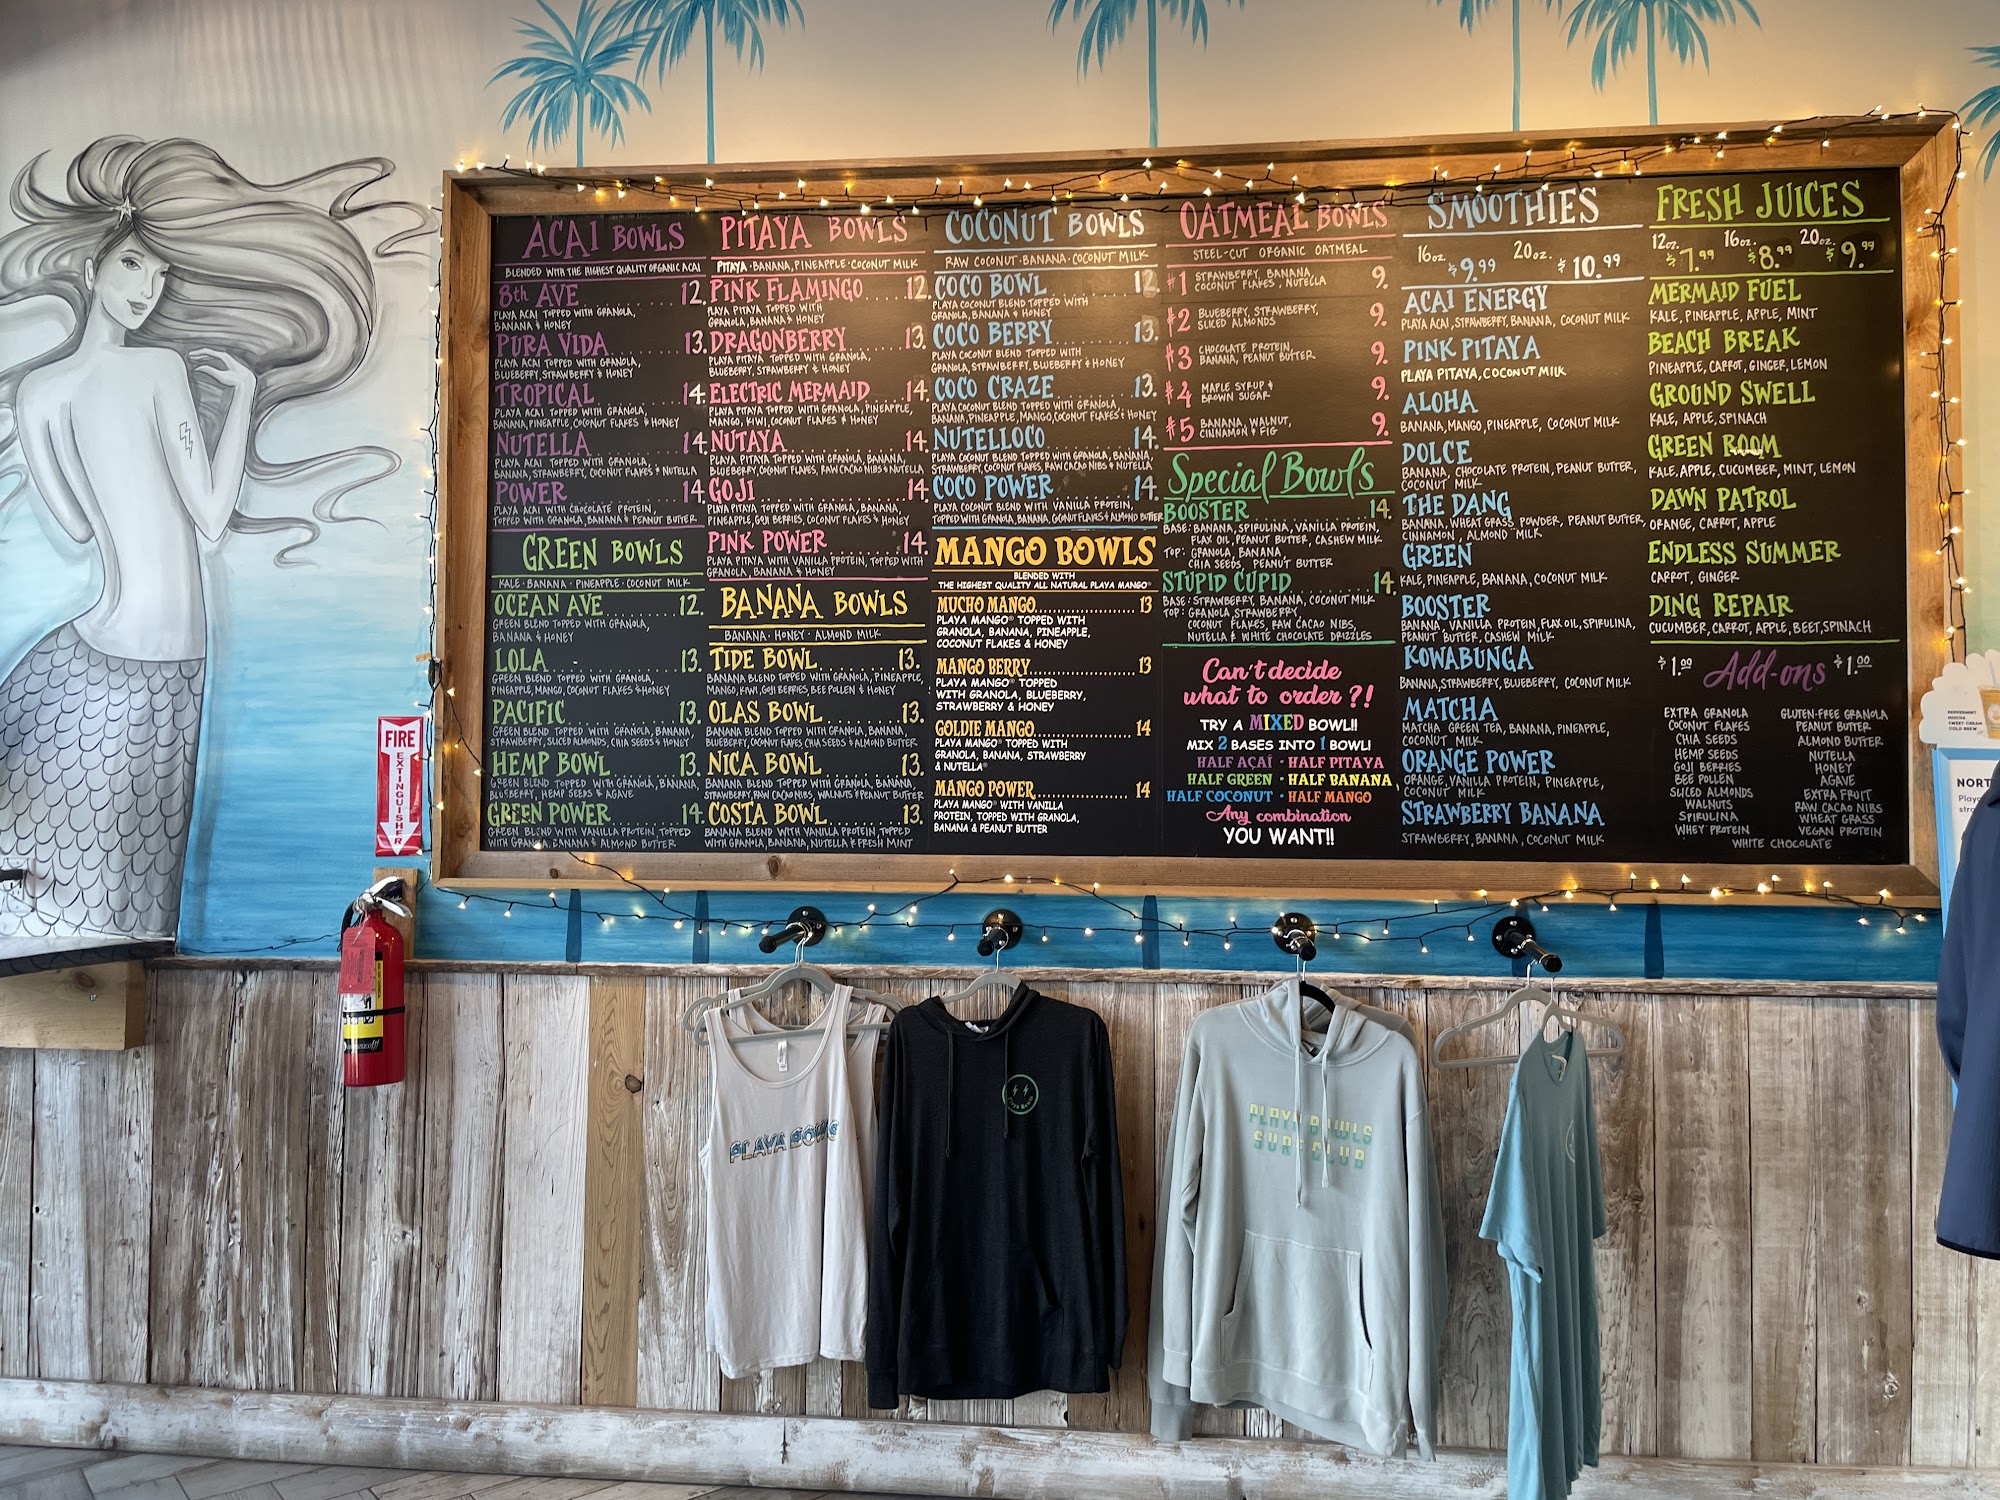 ACAI BOWLS
BLENDED WITH THE HIGHEST QUALITY ORGANIC ACAI
8th AVE 12.
PLAYA ACAI TOPPED WITH GRANOLA,
BANANA & HONEY
PURA VIDA 13.
PLAYA ACAI TOPPED WITH GRANOLA,
BLUEBERRY, STRAWBERRY & HONEY
TROPICAL 14.
PLAYA ACAI TOPPED WITH GRANOLA,
BANANA, PINEAPPLE, COCONUT FLAKES & HONEY
NUTELLA 14.
PLAYA ACAI TOPPED WITH GRANOLA,
BANANA, STRAWBERRY, COCONUT FLAKES & NUTELLA
POWER 14.
PLAYA ACAI WITH CHOCOLATE PROTEIN,
TOPPED WITH GRANOLA, BANANA & PEANUT BUTTER
GREEN BOWLS
KALE · BANANA · PINEAPPLE · COCONUT MILK
OCEAN AVE 12.
GREEN BLEND TOPPED WITH GRANOLA,
BANANA & HONEY
LOLA 13.
GREEN BLEND TOPPED WITH GRANOLA,
PINEAPPLE, MANGO, COCONUT FLAKES & HONEY
PACIFIC 13.
GREEN BLEND TOPPED WITH GRANOLA, BANANA,
STRAWBERRY, SLICED ALMONDS, CHIA SEEDS & HONEY
HEMP BOWL 13.
GREEN BLEND TOPPED WITH GRANOLA, BANANA,
BLUEBERRY, HEMP SEEDS & AGAVE
GREEN POWER 14.
GREEN BLEND WITH VANILLA PROTEIN, TOPPED
WITH GRANOLA, BANANA & ALMOND BUTTER
PITAYA BOWLS
PITAYA · BANANA, PINEAPPLE · COCONUT MILK
PINK FLAMINGO 12.
PLAYA PITAYA TOPPED WITH
GRANOLA, BANANA & HONEY
DRAGONBERRY 13.
PLAYA PITAYA TOPPED WITH GRANOLA,
BLUEBERRY, STRAWBERRY & HONEY
ELECTRIC MERMAID 14.
PLAYA PITAYA TOPPED WITH GRANOLA, PINEAPPLE,
MANGO, KIWI, COCONUT FLAKES & HONEY
NUTAYA 14.
PLAYA PITAYA TOPPED WITH GRANOLA, BANANA,
BLUEBERRY, COCONUT FLAKES, RAW CACAO NIBS & NUTELLA
GOJI 14.
PLAYA PITAYA TOPPED WITH GRANOLA, BANANA,
PINEAPPLE, GOJI BERRIES, COCONUT FLAKES & HONEY
PINK POWER 14.
PLAYA PITAYA WITH VANILLA PROTEIN, TOPPED WITH
GRANOLA, BANANA & HONEY
BANANA BOWLS
BANANA · HONEY · ALMOND MILK
TIDE BOWL 13.
BANANA BLEND TOPPED WITH GRANOLA, PINEAPPLE,
MANGO, KIWI, GOJI BERRIES, BEE POLLEN & HONEY
OLAS BOWL 13.
BANANA BLEND TOPPED WITH GRANOLA, BANANA,
BLUEBERRY, COCONUT FLAKES, CHIA SEEDS & ALMOND BUTTER
NICA BOWL 13.
BANANA BLEND TOPPED WITH GRANOLA, BANANA,
STRAWBERRY, RAW CACAO NIBS, WALNUTS & PEANUT BUTTER
COSTA BOWL 13.
BANANA BLEND WITH VANILLA PROTEIN, TOPPED
WITH GRANOLA, BANANA, NUTELLA & FRESH MINT
COCONUT BOWLS
RAW COCONUT · BANANA · COCONUT MILK
COCO BOWL 12.
PLAYA COCONUT BLEND TOPPED WITH
GRANOLA, BANANA & HONEY
COCO BERRY 13.
PLAYA COCONUT BLEND TOPPED WITH
GRANOLA, STRAWBERRY, BLUEBERRY & HONEY
COCO CRAZE 13.
PLAYA COCONUT BLEND TOPPED WITH GRANOLA,
BANANA, PINEAPPLE, MANGO, COCONUT FLAKES & HONEY
NUTELLOCO 14.
PLAYA COCONUT BLEND TOPPED WITH GRANOLA, BANANA,
STRAWBERRY, COCONUT FLAKES, RAW CACAO NIBS & NUTELLA
COCO POWER 14.
PLAYA COCONUT BLEND WITH VANILLA PROTEIN,
TOPPED WITH GRANOLA, BANANA, COCONUT FLAKES & ALMOND BUTTER
MANGO BOWLS
BLENDED WITH
THE HIGHEST QUALITY ALL NATURAL PLAYA MANGO®
MUCHO MANGO 13
PLAYA MANGO® TOPPED WITH
GRANOLA, BANANA, PINEAPPLE,
COCONUT FLAKES & HONEY
MANGO BERRY 13
PLAYA MANGO® TOPPED
WITH GRANOLA, BLUEBERRY,
STRAWBERRY & HONEY
GOLDIE MANGO 14
PLAYA MANGO® TOPPED WITH
GRANOLA, BANANA, STRAWBERRY
& NUTELLA®
MANGO POWER 14
PLAYA MANGO® WITH VANILLA
PROTEIN, TOPPED WITH GRANOLA,
BANANA & PEANUT BUTTER
OATMEAL BOWLS
STEEL-CUT ORGANIC OATMEAL
#1 STRAWBERRY, BANANA, 9.
COCONUT FLAKES, NUTELLA
#2 BLUEBERRY, STRAWBERRY, 9.
SLICED ALMONDS
#3 CHOCOLATE PROTEIN, 9.
BANANA, PEANUT BUTTER
#4 MAPLE SYRUP & 9.
BROWN SUGAR
#5 BANANA, WALNUT, 9.
CINNAMON & FIG
Special Bowls
BOOSTER 14.
BASE: BANANA, SPIRULINA, VANILLA PROTEIN,
FLAX OIL, PEANUT BUTTER, CASHEW MILK
TOP: GRANOLA, BANANA,
CHIA SEEDS, PEANUT BUTTER
STUPID CUPID 14.
BASE: STRAWBERRY, BANANA, COCONUT MILK
TOP: GRANOLA, STRAWBERRY,
COCONUT FLAKES, RAW CACAO NIBS,
NUTELLA & WHITE CHOCOLATE DRIZZLES
Can't decide
what to order?!
TRY A MIXED BOWL!!
MIX 2 BASES INTO 1 BOWL!
HALF AÇAÍ · HALF PITAYA
HALF GREEN · HALF BANANA
HALF COCONUT · HALF MANGO
Any combination
YOU WANT!!
SMOOTHIES
16oz. $9.99 20oz. $10.99
ACAI ENERGY
PLAYA ACAI, STRAWBERRY, BANANA, COCONUT MILK
PINK PITAYA
PLAYA PITAYA, COCONUT MILK
ALOHA
BANANA, MANGO, PINEAPPLE, COCONUT MILK
DOLCE
BANANA, CHOCOLATE PROTEIN, PEANUT BUTTER,
COCONUT MILK
THE DANG
BANANA, WHEAT GRASS POWDER, PEANUT BUTTER,
CINNAMON, ALMOND MILK
GREEN
KALE, PINEAPPLE, BANANA, COCONUT MILK
BOOSTER
BANANA, VANILLA PROTEIN, FLAX OIL, SPIRULINA,
PEANUT BUTTER, CASHEW MILK
KOWABUNGA
BANANA, STRAWBERRY, BLUEBERRY, COCONUT MILK
MATCHA
MATCHA GREEN TEA, BANANA, PINEAPPLE,
COCONUT MILK
ORANGE POWER
ORANGE, VANILLA PROTEIN, PINEAPPLE,
COCONUT MILK
STRAWBERRY BANANA
STRAWBERRY, BANANA, COCONUT MILK
FRESH JUICES
12oz. $7.99 16oz. $8.99 20oz. $9.99
MERMAID FUEL
KALE, PINEAPPLE, APPLE, MINT
BEACH BREAK
PINEAPPLE, CARROT, GINGER, LEMON
GROUND SWELL
KALE, APPLE, SPINACH
GREEN ROOM
KALE, APPLE, CUCUMBER, MINT, LEMON
DAWN PATROL
ORANGE, CARROT, APPLE
ENDLESS SUMMER
CARROT, GINGER
DING REPAIR
CUCUMBER, CARROT, APPLE, BEET, SPINACH
$1.00 Add-ons $1.00
EXTRA GRANOLA
COCONUT FLAKES
CHIA SEEDS
HEMP SEEDS
GOJI BERRIES
BEE POLLEN
SLICED ALMONDS
WALNUTS
SPIRULINA
WHEY PROTEIN
GLUTEN-FREE GRANOLA
PEANUT BUTTER
ALMOND BUTTER
NUTELLA
HONEY
AGAVE
EXTRA FRUIT
RAW CACAO NIBS
WHEAT GRASS
VEGAN PROTEIN
WHITE CHOCOLATE
FIRE
EXTINGUISHER
PEPPERMINT
MOCHA
SWEET CREAM
COLD BREW
NORT
Playa
PLAYA BOWLS
Playa Bowls
PLAYA BOWLS
SURF CLUB